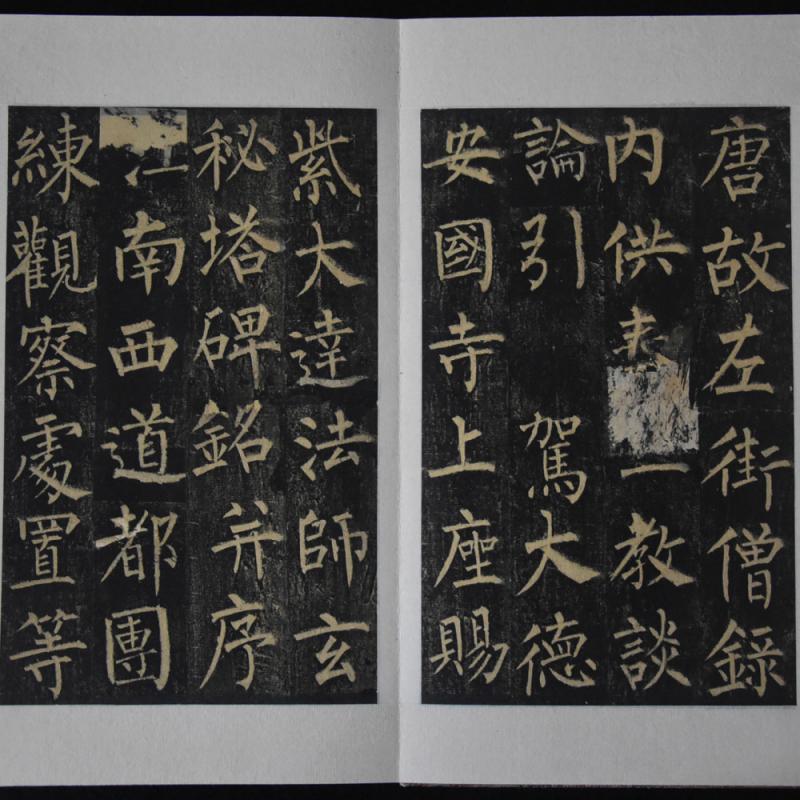 唐故左街僧錄
內供一教談
論引 駕大德
安國寺上座賜
紫大達法師玄
秘塔碑銘并序
江南西道都團
練觀察處置等